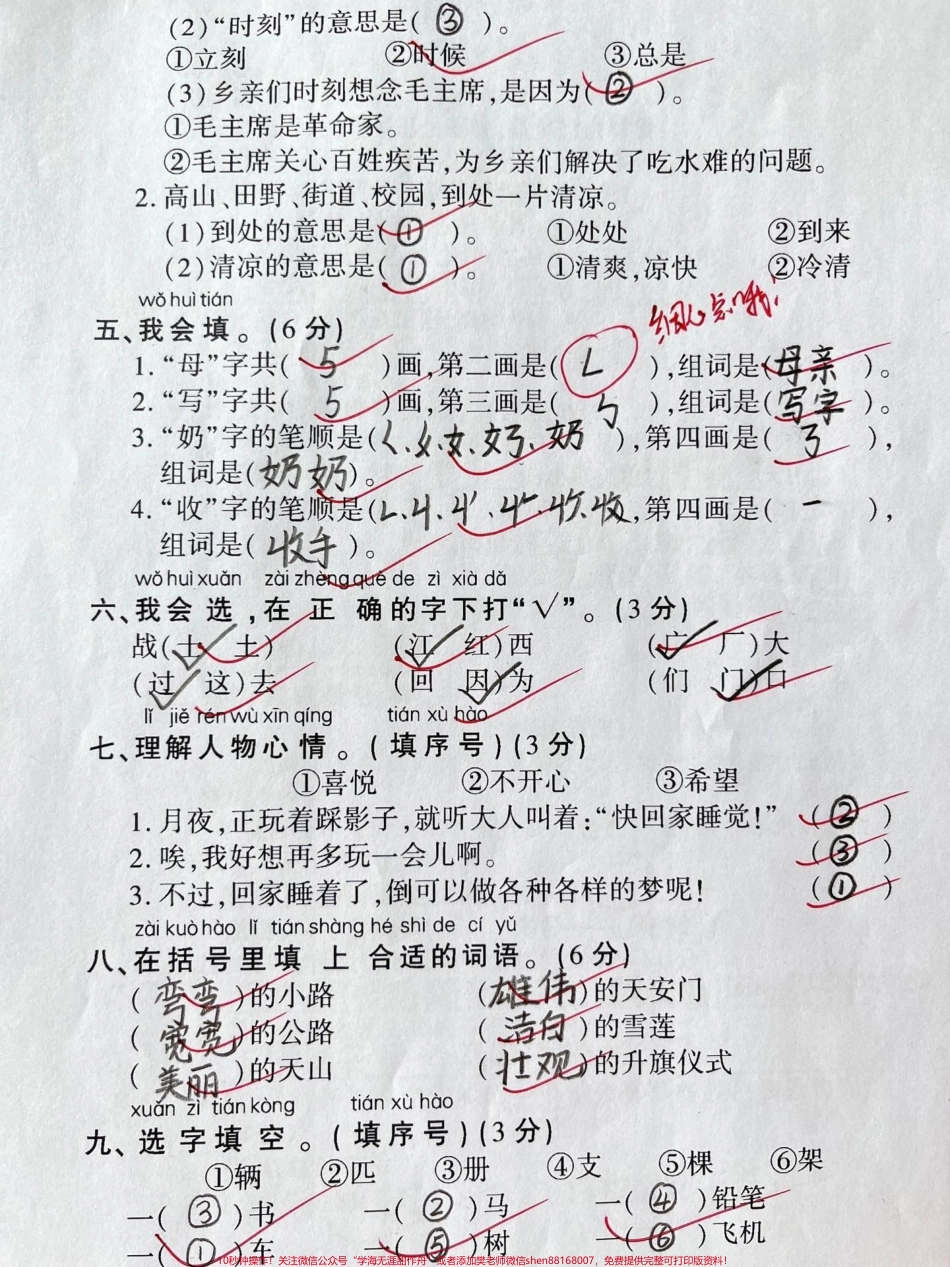 (2)“时刻”的意思是( ③ )。
①立刻 ②时候 ③总是
(3)乡亲们时刻想念毛主席,是因为( ② )。
①毛主席是革命家。
②毛主席关心百姓疾苦,为乡亲们解决了吃水难的问题。
2.高山、田野、街道、校园,到处一片清凉。
(1)到处的意思是( ① )。 ①处处 ②到来
(2)清凉的意思是( ① )。 ①清爽,凉快 ②冷清
wǒ huì tián
细心点哦!
五、我会填。(6分)
1.“母”字共( 5 )画,第二画是( ㇄ ),组词是(母亲)。
2.“写”字共( 5 )画,第三画是( ㇉ ),组词是(写字)。
3.“奶”字的笔顺是(𡿨、乂、女、奶),第四画是( ㇡ ),
组词是(奶奶)。
4.“收”字的笔顺是(收),第四画是( 一 ),
组词是( 收手 )。
wǒ huì xuǎn zài zhèng què de zì xià dǎ
六、我会选,在正确的字下打“√”。(3分)
战(士 土) (江 红)西 (广 厂)大
(过 这)去 (回 因)为 (们 门)口
lǐ jiě rén wù xīn qíng tián xù hào
七、理解人物心情。(填序号)(3分)
①喜悦 ②不开心 ③希望
1.月夜,正玩着踩影子,就听大人叫着:“快回家睡觉!” ( ② )
2.唉,我好想再多玩一会儿啊。 ( ③ )
3.不过,回家睡着了,倒可以做各种各样的梦呢! ( ① )
zài kuò hào lǐ tián shàng hé shì de cí yǔ
八、在括号里填上合适的词语。(6分)
( 弯弯 )的小路 (雄伟)的天安门
( 宽宽 )的公路 ( 洁白 )的雪莲
( 美丽 )的天山 ( 壮观 )的升旗仪式
xuǎn zì tián kòng tián xù hào
九、选字填空。(填序号)(3分)
①辆 ②匹 ③册 ④支 ⑤棵 ⑥架
一( ③ )书 一( ② )马 一( ④ )铅笔
一( ① )车 一( ⑤ )树 一( ⑥ )飞机
10秒钟操作!关注微信公众号“学海无涯甜作舟”或者添加樊老师微信shen88168007,免费提供完整可打印版资料!